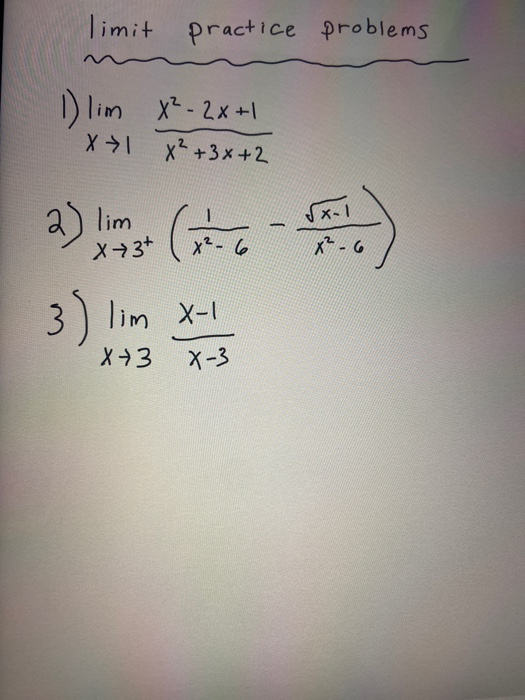 limit practice problems
1) lim x→1 (x² - 2x + 1)/(x² + 3x + 2)
2) lim x→3⁺ (1/(x² - 6) - √(x-1)/(x² - 6))
3) lim x→3 (x-1)/(x-3)